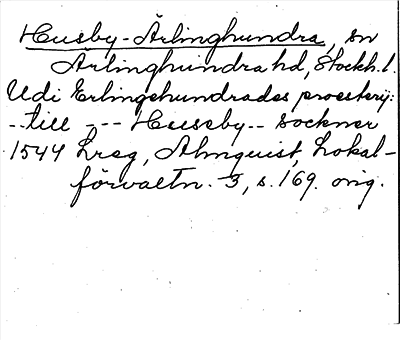 Husby-Ärlinghundra, sn
Ärlinghundra hd, Stockh. l.
Udi Erlingehundrades proesterij:
-- till --- Huseby -- sockner
1544 Lreg, Almquist, Lokal-
förvaltn. 3, s. 169. orig.